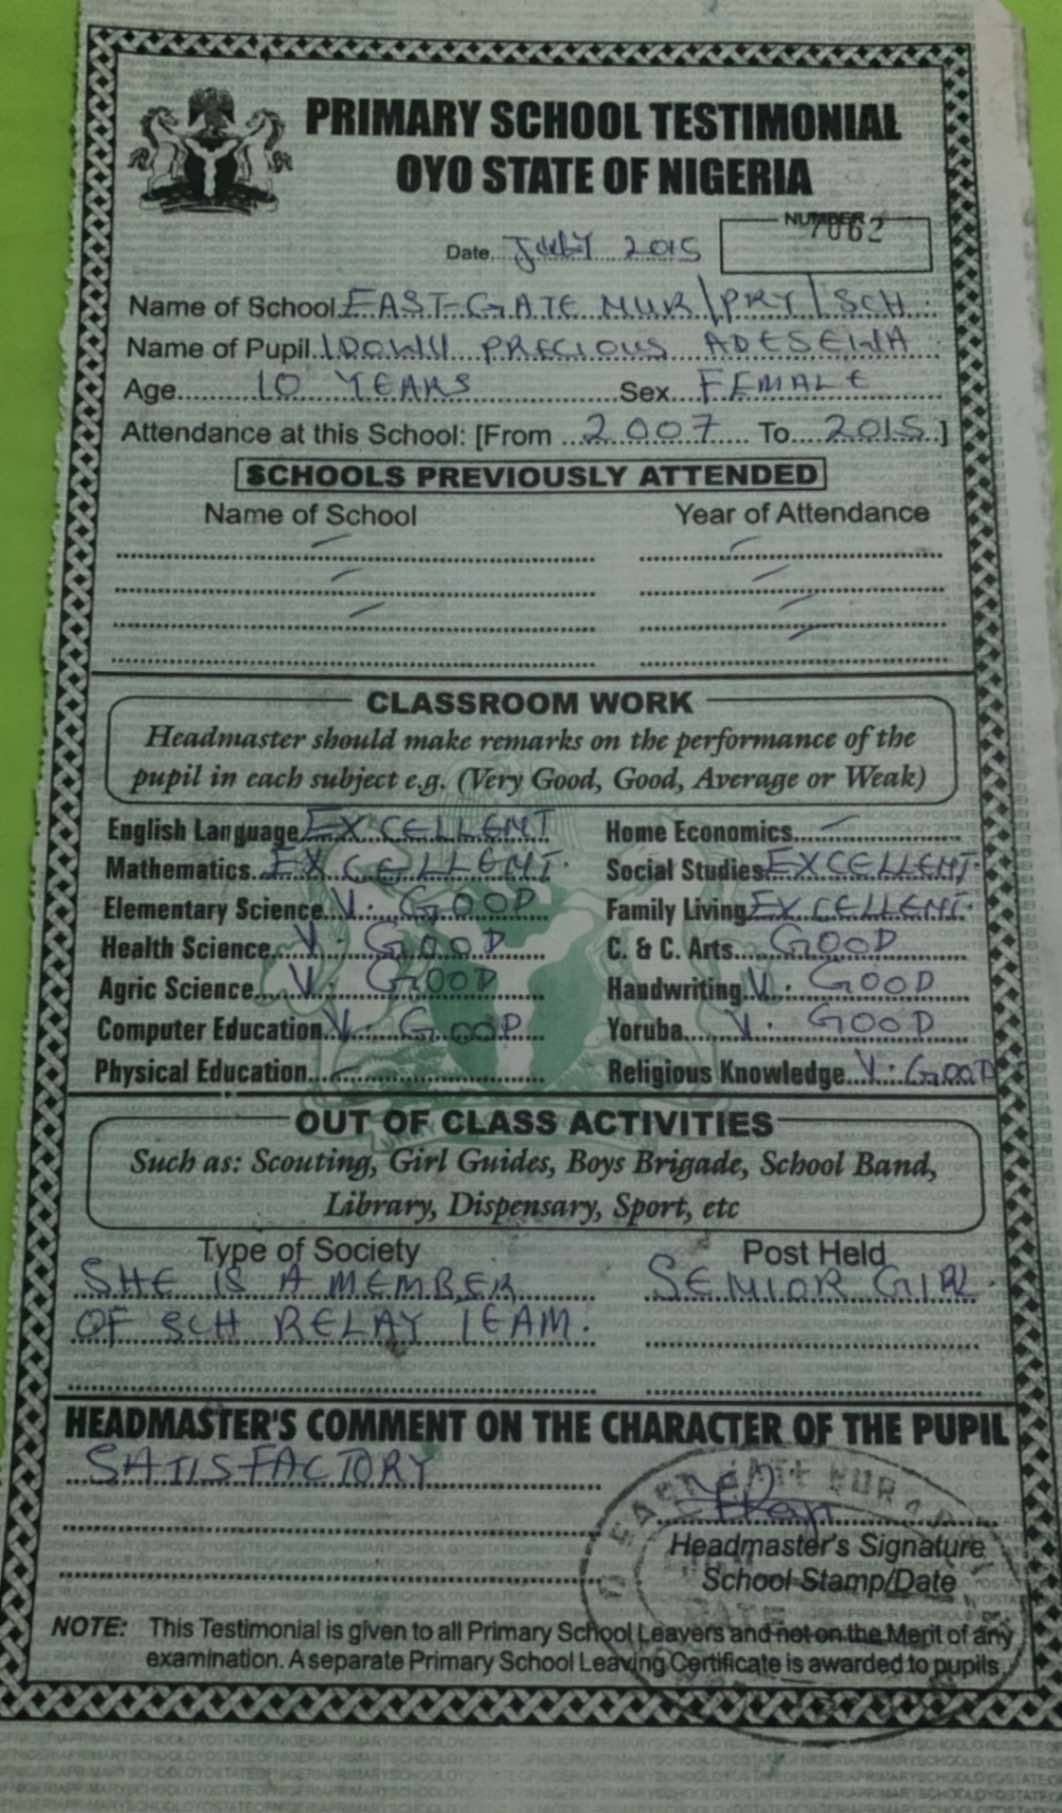 PRIMARY SCHOOL TESTIMONIAL
OYO STATE OF NIGERIA
NUMBER 7062
Date JULY 2015
Name of School EAST-GATE NUR/PRY/SCH.
Name of Pupil IDOWU PRECIOUS ADESEWA
Age 10 YEARS Sex FEMALE
Attendance at this School: [From 2007 To 2015]
SCHOOLS PREVIOUSLY ATTENDED
Name of School Year of Attendance
CLASSROOM WORK
Headmaster should make remarks on the performance of the
pupil in each subject e.g. (Very Good, Good, Average or Weak)
English Language EXCELLENT Home Economics –
Mathematics EXCELLENT. Social Studies EXCELLENT.
Elementary Science V. GOOD Family Living EXCELLENT.
Health Science V. GOOD C. & C. Arts GOOD
Agric Science V. GOOD Handwriting V. GOOD
Computer Education V. GOOD Yoruba V. GOOD
Physical Education – Religious Knowledge V. GOOD
OUT OF CLASS ACTIVITIES
Such as: Scouting, Girl Guides, Boys Brigade, School Band,
Library, Dispensary, Sport, etc
Type of Society Post Held
SHE IS A MEMBER SENIOR GIRL.
OF SCH RELAY TEAM.
HEADMASTER'S COMMENT ON THE CHARACTER OF THE PUPIL
SATISFACTORY
Headmaster's Signature
School Stamp/Date
NOTE: This Testimonial is given to all Primary School Leavers and not on the Merit of any
examination. A separate Primary School Leaving Certificate is awarded to pupils